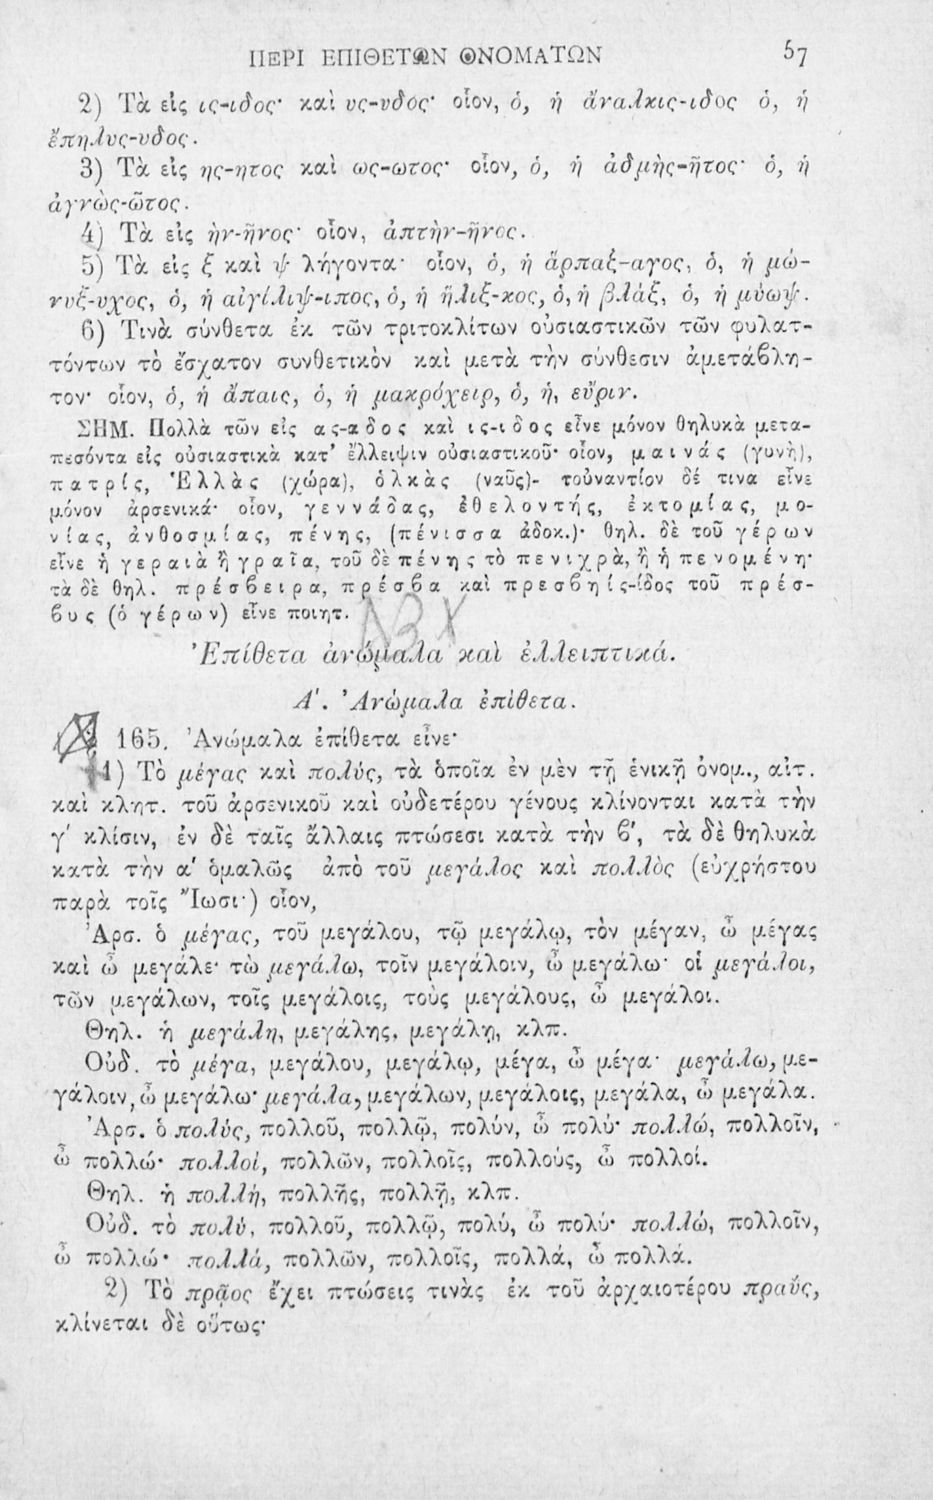 ΠΕΡΙ ΕΠΙΘΕΤΩΝ ΟΝΟΜΑΤΩΝ 57
2) Τὰ εἰς ις-ιδος· καὶ υς-υδος· οἷον, ὁ, ἡ ἄναλκις-ιδος ὁ, ἡ
ἔπηλυς-υδος.
3) Τὰ εἰς ης-ητος καὶ ως-ωτος· οἷον, ὁ, ἡ ἀδμὴς-ῆτος· ὁ, ἡ
ἀγνὼς-ῶτος.
4) Τὰ εἰς ὴν-ῆνος· οἷον, ἀπτὴν-ῆνος.
5) Τὰ εἰς ξ καὶ ψ λήγοντα· οἷον, ὁ, ἡ ἅρπαξ-αγος, ὁ, ἡ μώ-
νυξ-υχος, ὁ, ἡ αἰγίλιψ-ιπος, ὁ, ἡ ἥλιξ-κος, ὁ, ἡ βλάξ, ὁ, ἡ μύωψ.
6) Τινὰ σύνθετα ἐκ τῶν τριτοκλίτων οὐσιαστικῶν τῶν φυλατ-
τόντων τὸ ἔσχατον συνθετικὸν καὶ μετὰ τὴν σύνθεσιν ἀμετάβλη-
τον· οἷον, ὁ, ἡ ἄπαις, ὁ, ἡ μακρόχειρ, ὁ, ἡ, εὔριν.
ΣΗΜ. Πολλὰ τῶν εἰς ας-αδος καὶ ις-ιδος εἶνε μόνον θηλυκὰ μετα-
πεσόντα εἰς οὐσιαστικὰ κατ' ἔλλειψιν οὐσιαστικοῦ· οἷον, μαινάς (γυνὴ),
πατρίς, Ἑλλὰς (χώρα), ὁλκὰς (ναῦς)- τοὐναντίον δέ τινα εἶνε
μόνον ἀρσενικά· οἷον, γεννάδας, ἐθελοντής, ἐκτομίας, μο-
νίας, ἀνθοσμίας, πένης, (πένισσα ἀδοκ.)· θηλ. δὲ τοῦ γέρων
εἶνε ἡ γεραιὰ ἢ γραῖα, τοῦ δὲ πένης τὸ πενιχρὰ, ἢ ἡ πενομένη·
τὰ δὲ θηλ. πρέσβειρα, πρέσβα καὶ πρεσβηίς-ίδος τοῦ πρέσ-
βυς (ὁ γέρων) εἶνε ποιητ.
Ἐπίθετα ἀνώμαλα καὶ ἐλλειπτικά.
Α'. Ἀνώμαλα ἐπίθετα.
165. Ἀνώμαλα ἐπίθετα εἶνε·
1) Τὸ μέγας καὶ πολύς, τὰ ὁποῖα ἐν μὲν τῇ ἑνικῇ ὀνομ., αἰτ.
καὶ κλητ. τοῦ ἀρσενικοῦ καὶ οὐδετέρου γένους κλίνονται κατὰ τὴν
γ' κλίσιν, ἐν δὲ ταῖς ἄλλαις πτώσεσι κατὰ τὴν β', τὰ δὲ θηλυκὰ
κατὰ τὴν α' ὁμαλῶς ἀπὸ τοῦ μεγάλος καὶ πολλὸς (εὐχρήστου
παρὰ τοῖς Ἴωσι·) οἷον,
Ἀρσ. ὁ μέγας, τοῦ μεγάλου, τῷ μεγάλῳ, τὸν μέγαν, ὦ μέγας
καὶ ὦ μεγάλε· τὼ μεγάλω, τοῖν μεγάλοιν, ὦ μεγάλω· οἱ μεγάλοι,
τῶν μεγάλων, τοῖς μεγάλοις, τοὺς μεγάλους, ὦ μεγάλοι.
Θηλ. ἡ μεγάλη, μεγάλης, μεγάλῃ, κλπ.
Οὐδ. τὸ μέγα, μεγάλου, μεγάλῳ, μέγα, ὦ μέγα· μεγάλω, με-
γάλοιν, ὦ μεγάλω· μεγάλα, μεγάλων, μεγάλοις, μεγάλα, ὦ μεγάλα.
Ἀρσ. ὁ πολύς, πολλοῦ, πολλῷ, πολύν, ὦ πολύ· πολλώ, πολλοῖν,
ὦ πολλώ· πολλοί, πολλῶν, πολλοῖς, πολλούς, ὦ πολλοί.
Θηλ. ἡ πολλή, πολλῆς, πολλῇ, κλπ.
Οὐδ. τὸ πολύ, πολλοῦ, πολλῷ, πολύ, ὦ πολύ· πολλώ, πολλοῖν,
ὦ πολλώ· πολλά, πολλῶν, πολλοῖς, πολλά, ὦ πολλά.
2) Τὸ πρᾷος ἔχει πτώσεις τινὰς ἐκ τοῦ ἀρχαιοτέρου πραΰς,
κλίνεται δὲ οὕτως·